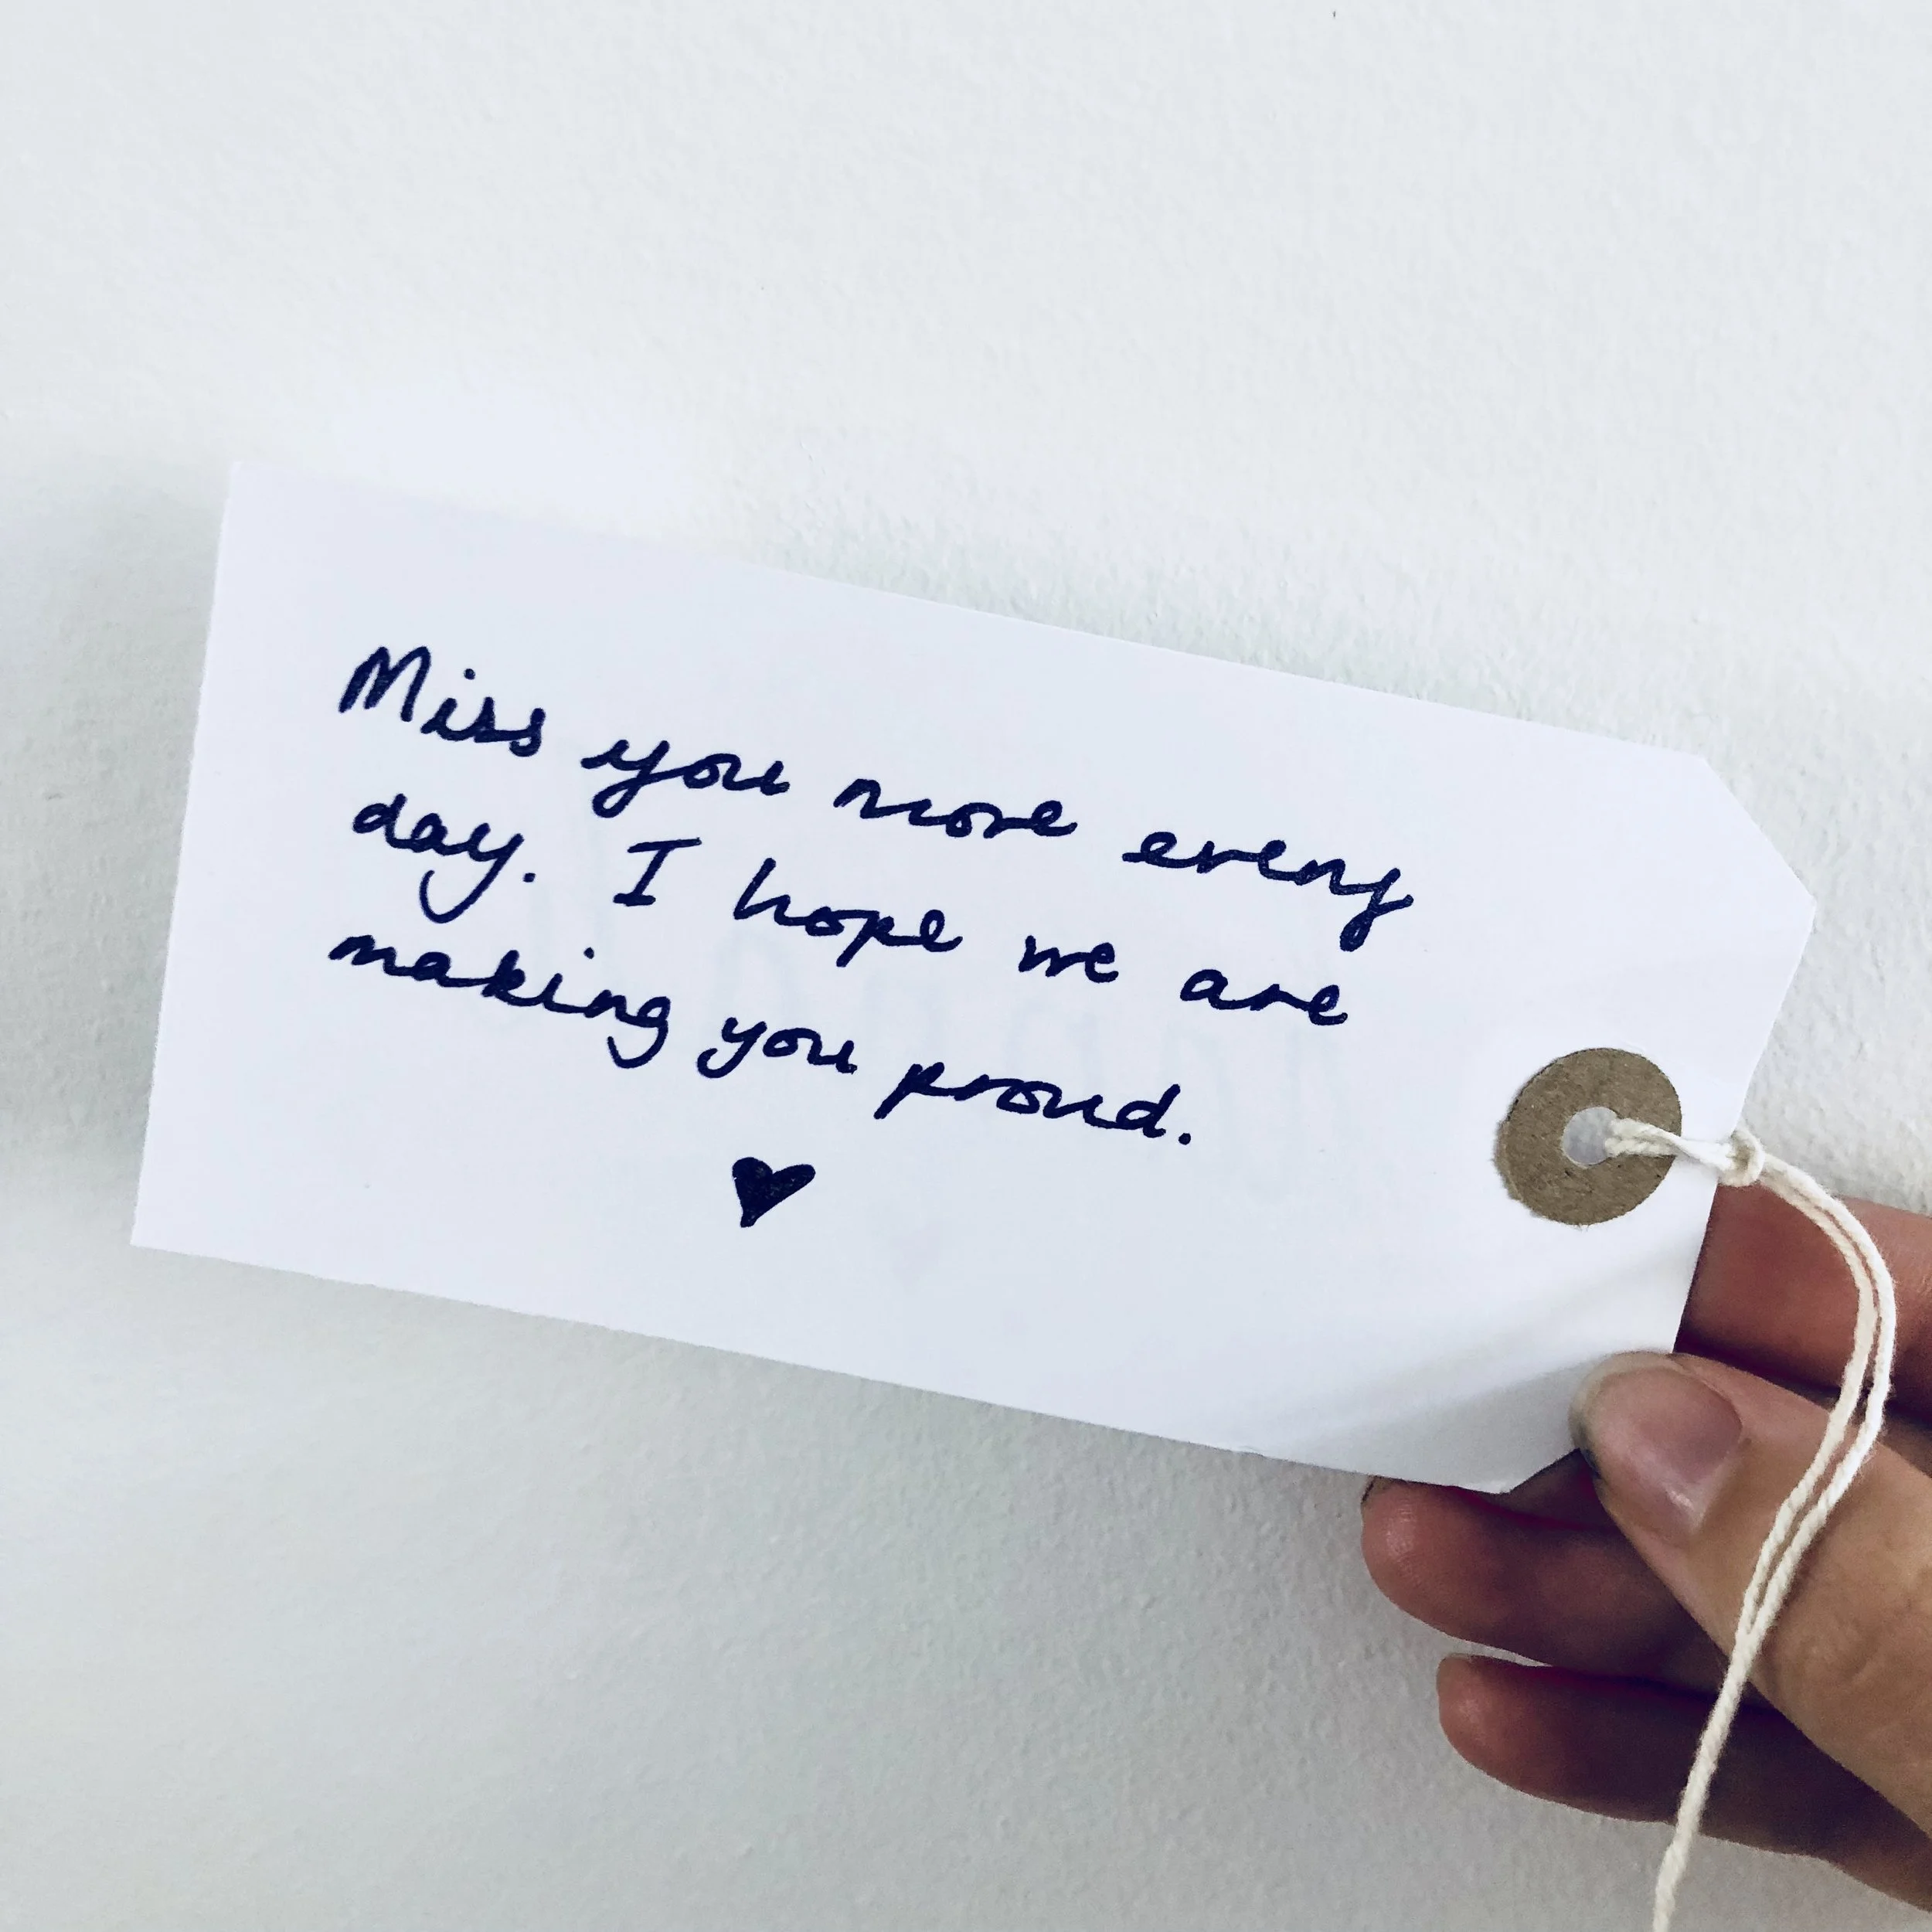 Miss you more every
day. I hope we are
making you proud.
♥